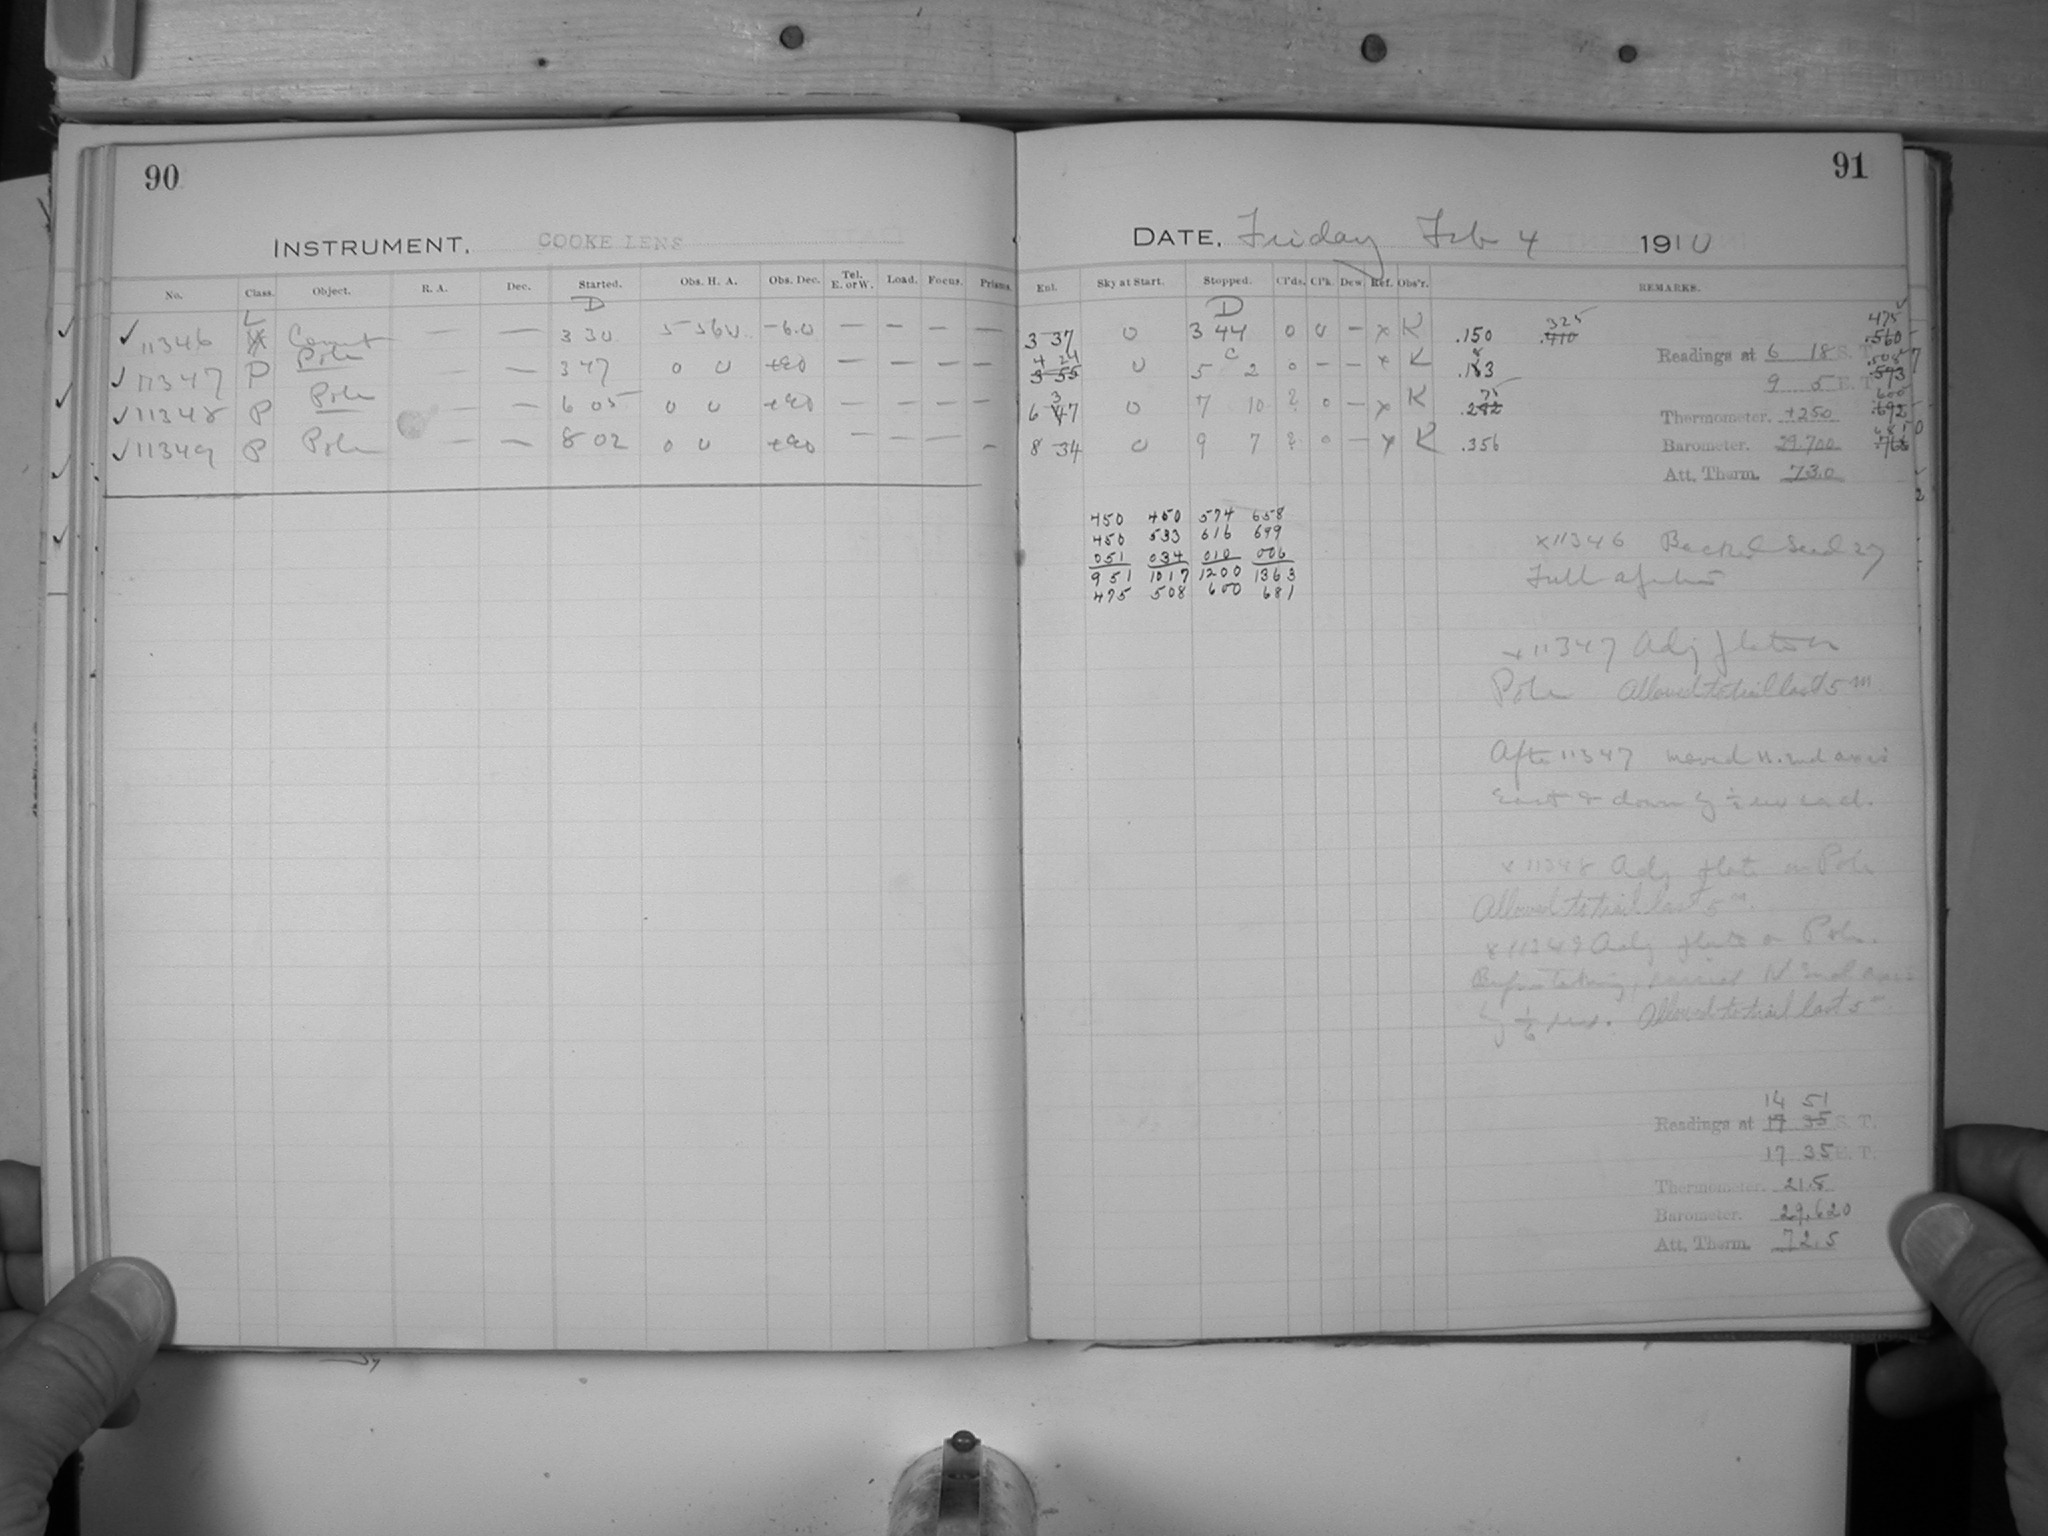 90
INSTRUMENT. COOKE LENS
No. Class. Object. R. A. Dec. Started. Obs. H. A. Obs. Dec. Tel. E. or W. Load. Focus. Prisms.
L D
11346 Comet — — 3 30 5 56 U -6.0 — — — —
11347 P Pole — — 3 47 0 U +90 — — — —
11348 P Pole — — 6 05 0 U +90 — — — —
11349 P Pole — — 8 02 0 U +90 — — — —
91
DATE, Friday Feb 4 1910
Ent. Sky at Start. Stopped. Cl'ds. Cl'k. Dew. Ref. Obs'r. REMARKS.
D
3 37 U 3 44 0 U — x K .150 325 .410
4 24 3 55 U C 5 2 0 — — x K
6 47 U 7 10 ? 0 — x K
8 34 U 9 7 ? 0 — x K .356
475
.560
Readings at 6 18 S. T.
9 5 E. T.
Thermometer. +250
Barometer. 29.700
Att. Therm. 73.0
450 450 574 658
450 533 616 699
051 034 010 006
951 1017 1200 1363
475 508 600 681
x11346 Backed Seed 27
Full aperture
x11347 Adj plate on
Pole Allowed to trail last 5 m
After 11347 moved N. end axis
East & down by ½ rev each.
x 11348 Adj plate on Pole
Allowed to trail last 5 m.
x 11349 Adj plate on Pole.
Before taking, N end axis
by 1/6 rev. Allowed to trail last 5 m.
14 51
Readings at 17 35 S. T.
17 35 E. T.
Thermometer. 21.5
Barometer. 29.620
Att. Therm. 72.5